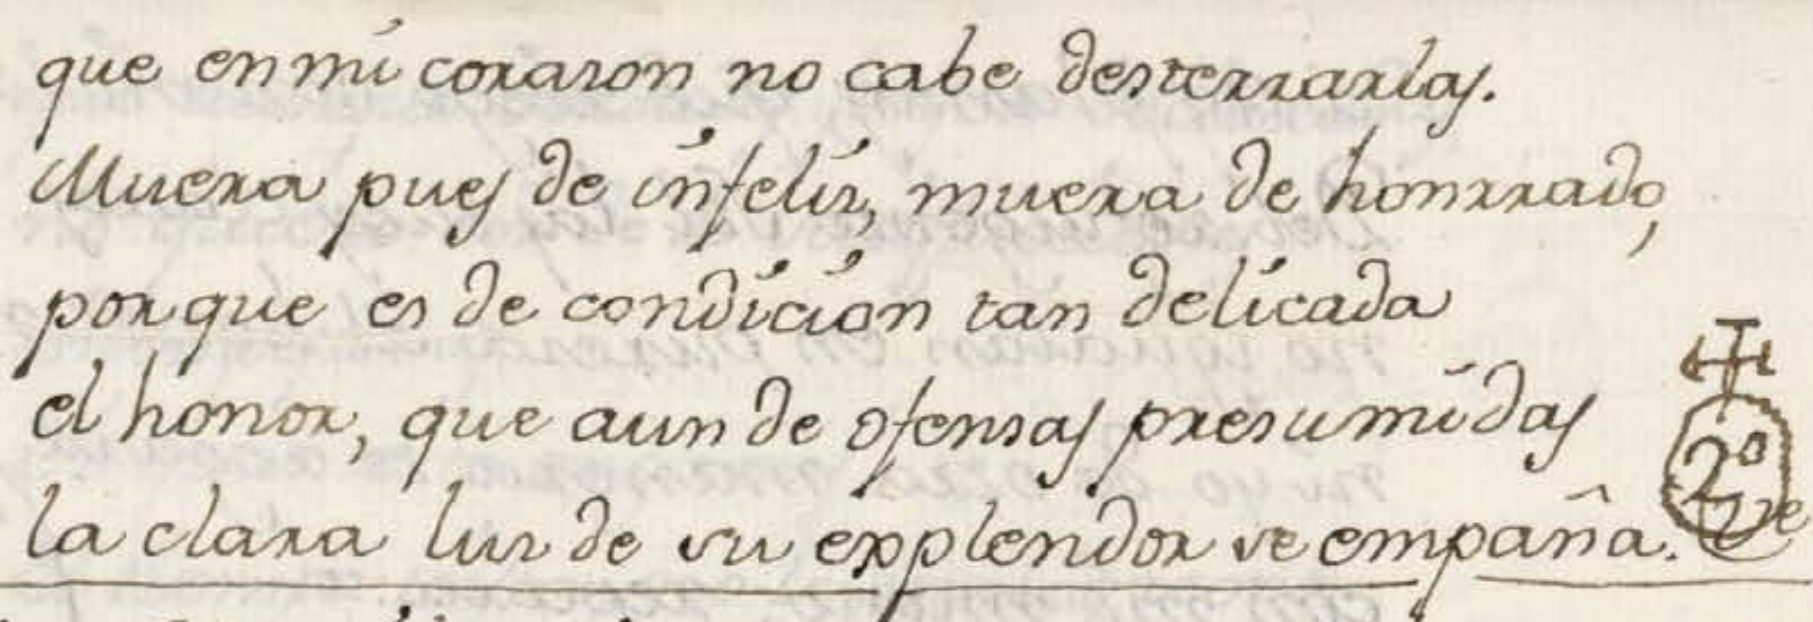 que en mi corazon no cabe desterrarlas.
Muera pues de infeliz, muera de honrrado,
porque es de condicion tan delicada
el honor, que aun de ofensas presumidas
la clara luz de su explendor se empaña.
2º